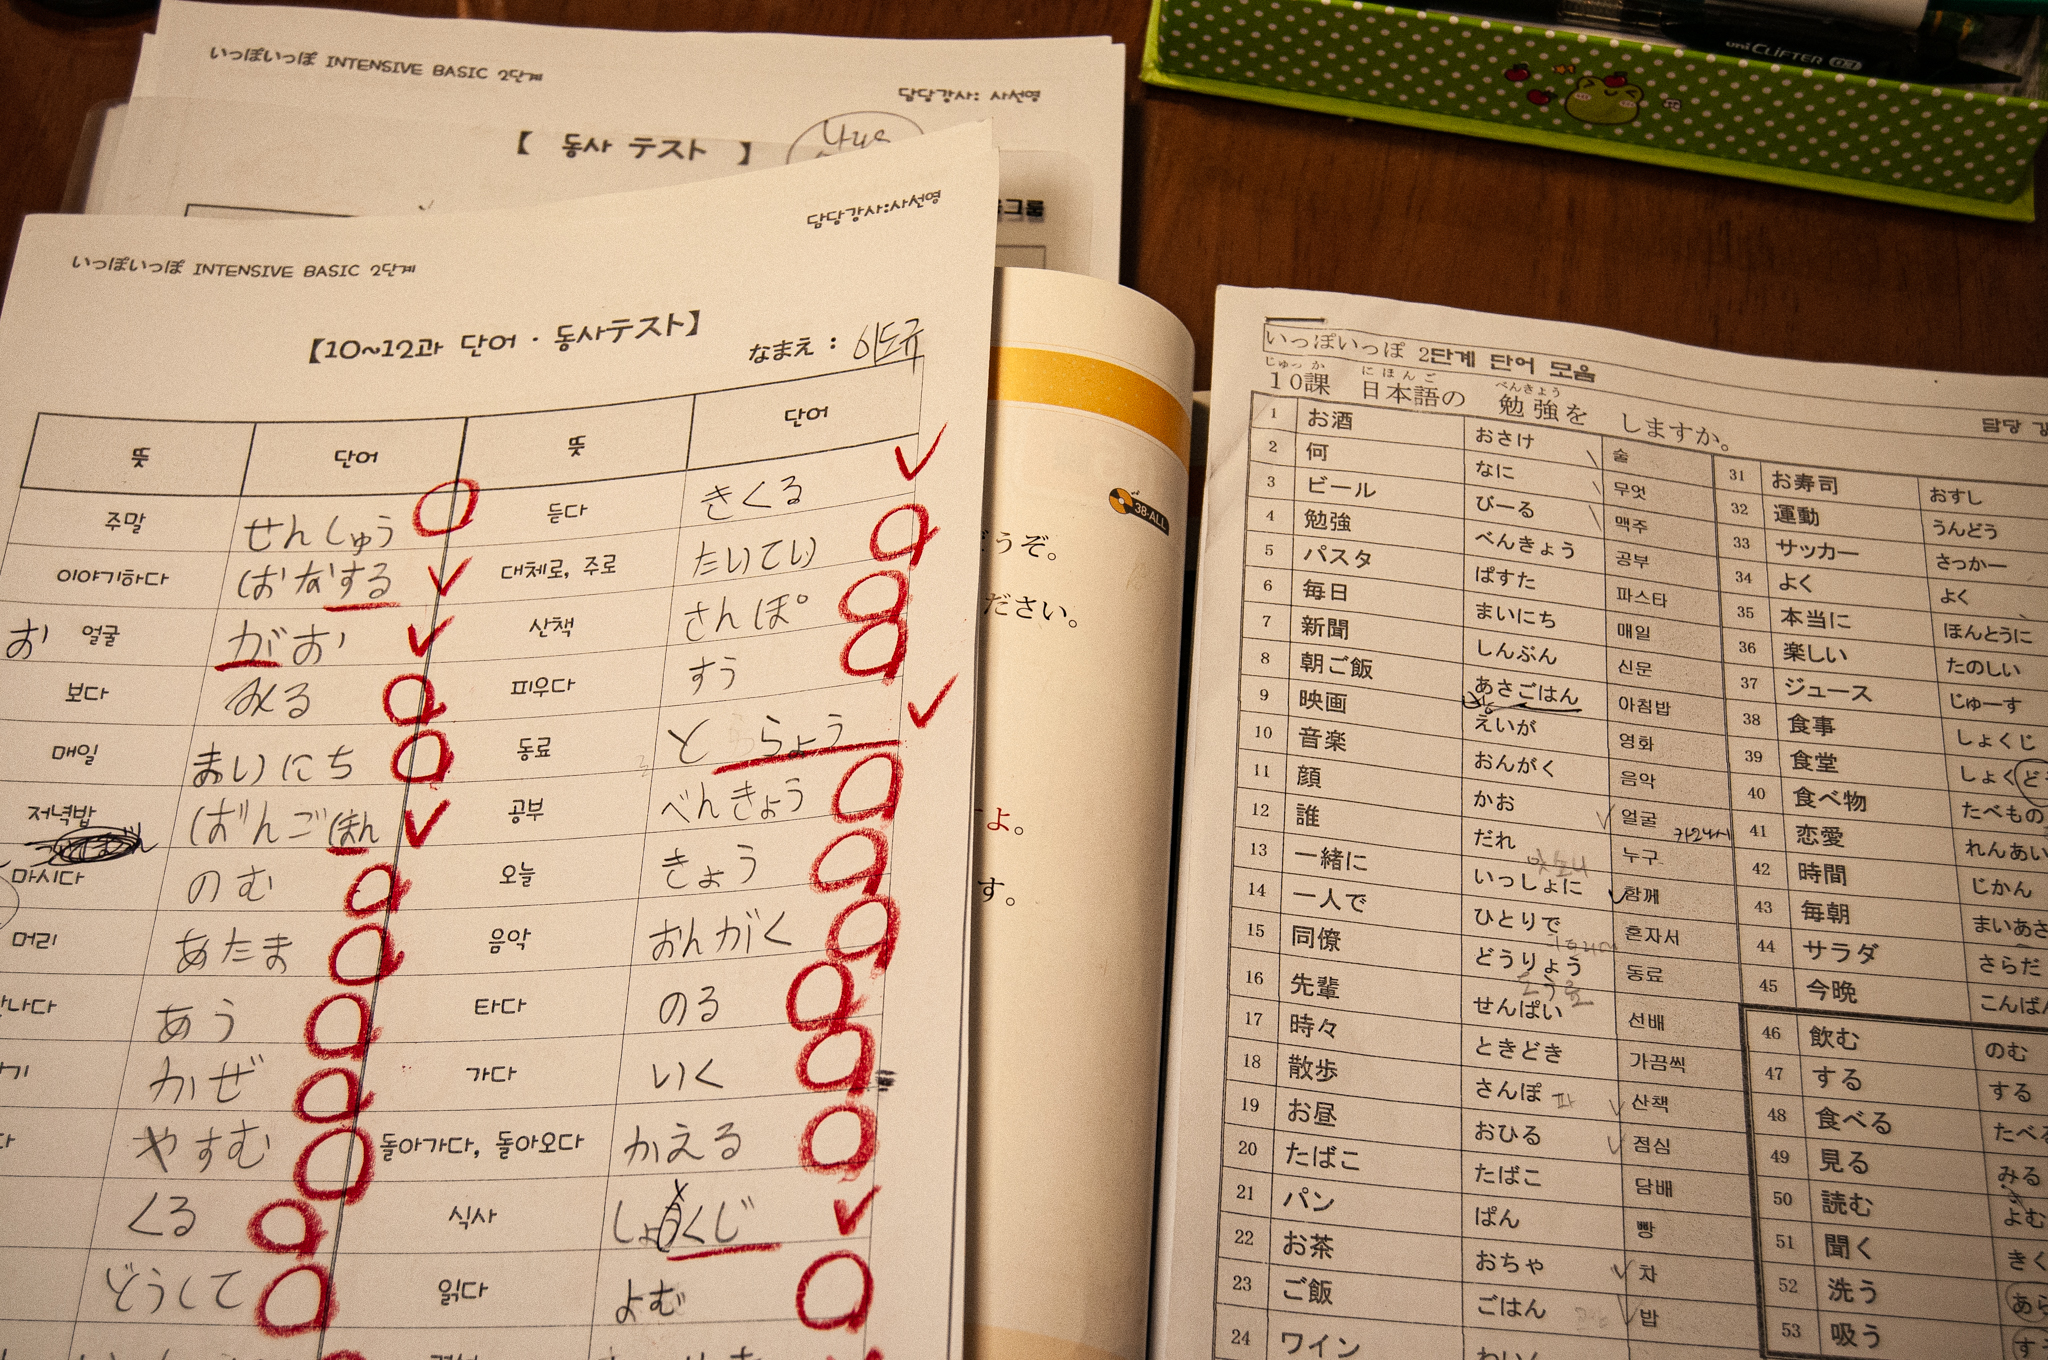 いっぽいっぽ INTENSIVE BASIC 2단계
담당강사: 사선영
【 동사 テスト 】
그룹
いっぽいっぽ INTENSIVE BASIC 2단계
담당강사:사선영
【10~12과 단어 · 동사テスト】
なまえ : 이도규
뜻 단어 뜻 단어
주말 せんしゅう 듣다 きくる
이야기하다 はなする 대체로, 주로 たいてい
お 얼굴 がお 산책 さんぽ
보다 みる 피우다 すう
매일 まいにち 동료 と らょう
저녁밥 ばんごはん 공부 べんきょう
마시다 のむ 오늘 きょう
머리 あたま 음악 おんがく
나다 あう 타다 のる
기 かぜ 가다 いく
다 やすむ 돌아가다, 돌아오다 かえる
くる 식사 しょくじ
どうして 읽다 よむ
38-ALL
うぞ。
ださい。
よ。
す。
uni CLiFTER 0.7
いっぽいっぽ 2단계 단어 모음
じゅっか にほんご べんきょう
10課 日本語の 勉強を しますか。
담당 강
1 お酒 おさけ 술
2 何 なに 무엇
3 ビール びーる 맥주
4 勉強 べんきょう 공부
5 パスタ ぱすた 파스타
6 毎日 まいにち 매일
7 新聞 しんぶん 신문
8 朝ご飯 あさごはん 아침밥
9 映画 えいが 영화
10 音楽 おんがく 음악
11 顔 かお 얼굴
12 誰 だれ 누구
13 一緒に いっしょに 함께
14 一人で ひとりで 혼자서
15 同僚 どうりょう 동료
16 先輩 せんぱい 선배
17 時々 ときどき 가끔씩
18 散歩 さんぽ 산책
19 お昼 おひる 점심
20 たばこ たばこ 담배
21 パン ぱん 빵
22 お茶 おちゃ 차
23 ご飯 ごはん 밥
24 ワイン わいん
31 お寿司 おすし
32 運動 うんどう
33 サッカー さっかー
34 よく よく
35 本当に ほんとうに
36 楽しい たのしい
37 ジュース じゅーす
38 食事 しょくじ
39 食堂 しょくど
40 食べ物 たべもの
41 恋愛 れんあい
42 時間 じかん
43 毎朝 まいあさ
44 サラダ さらだ
45 今晩 こんばん
46 飲む のむ
47 する する
48 食べる たべる
49 見る みる
50 読む よむ
51 聞く きく
52 洗う あら
53 吸う す